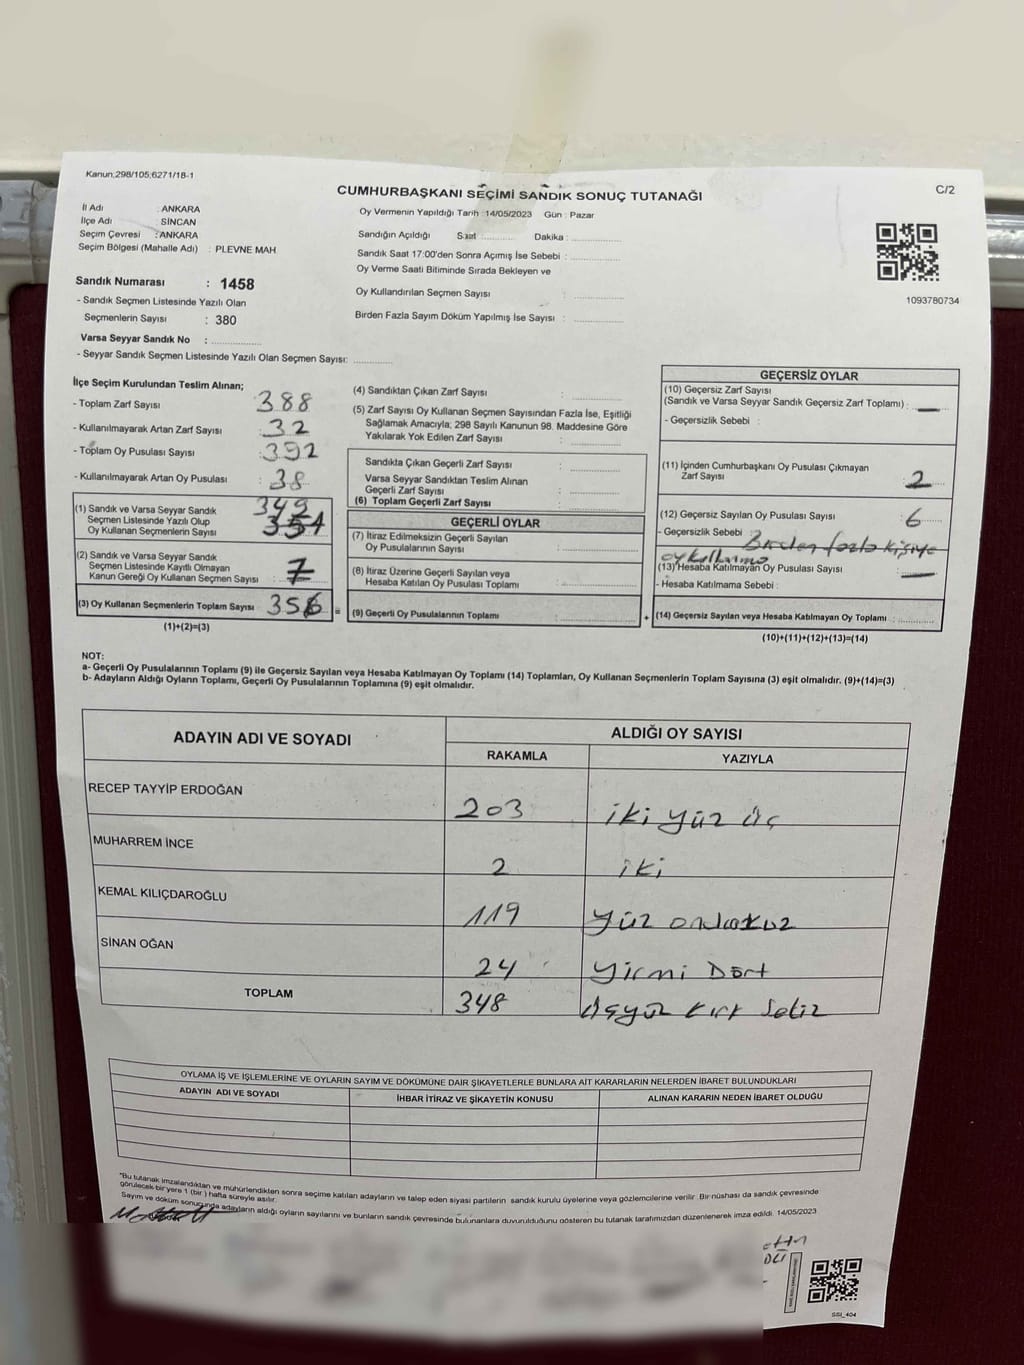 Kanun;298/105;6271/18-1
C/2
CUMHURBAŞKANI SEÇİMİ SANDIK SONUÇ TUTANAĞI
İl Adı : ANKARA
İlçe Adı : SİNCAN
Seçim Çevresi : ANKARA
Seçim Bölgesi (Mahalle Adı) : PLEVNE MAH.
Oy Vermenin Yapıldığı Tarih :14/05/2023 Gün : Pazar
Sandığın Açıldığı Saat :............ Dakika :............
Sandık Saat 17:00'den Sonra Açımış İse Sebebi :............
Oy Verme Saati Bitiminde Sırada Bekleyen ve
Oy Kullandırılan Seçmen Sayısı :............
Birden Fazla Sayım Döküm Yapılmış İse Sayısı :............
1093780734
Sandık Numarası : 1458
- Sandık Seçmen Listesinde Yazılı Olan
Seçmenlerin Sayısı : 380
Varsa Seyyar Sandık No :............
- Seyyar Sandık Seçmen Listesinde Yazılı Olan Seçmen Sayısı:............
İlçe Seçim Kurulundan Teslim Alınan;
- Toplam Zarf Sayısı : 388
- Kullanılmayarak Artan Zarf Sayısı : 32
- Toplam Oy Pusulası Sayısı : 392
- Kullanılmayarak Artan Oy Pusulası : 38
(1) Sandık ve Varsa Seyyar Sandık
Seçmen Listesinde Yazılı Olup
Oy Kullanan Seçmenlerin Sayısı : 349
351
(2) Sandık ve Varsa Seyyar Sandık
Seçmen Listesinde Kayıtlı Olmayan
Kanun Gereği Oy Kullanan Seçmen Sayısı : 7
(3) Oy Kullanan Seçmenlerin Toplam Sayısı : 356 =
(1)+(2)=(3)
(4) Sandıktan Çıkan Zarf Sayısı :............
(5) Zarf Sayısı Oy Kullanan Seçmen Sayısından Fazla İse, Eşitliği
Sağlamak Amacıyla; 298 Sayılı Kanunun 98. Maddesine Göre
Yakılarak Yok Edilen Zarf Sayısı :............
Sandıkta Çıkan Geçerli Zarf Sayısı :............
Varsa Seyyar Sandıktan Teslim Alınan
Geçerli Zarf Sayısı :............
(6) Toplam Geçerli Zarf Sayısı :............
GEÇERLİ OYLAR
(7) İtiraz Edilmeksizin Geçerli Sayılan
Oy Pusulalarının Sayısı :............
(8) İtiraz Üzerine Geçerli Sayılan veya
Hesaba Katılan Oy Pusulası Toplamı :............
(9) Geçerli Oy Pusulalarının Toplamı :............ +
GEÇERSİZ OYLAR
(10) Geçersiz Zarf Sayısı
(Sandık ve Varsa Seyyar Sandık Geçersiz Zarf Toplamı) : —
- Geçersizlik Sebebi :
(11) İçinden Cumhurbaşkanı Oy Pusulası Çıkmayan
Zarf Sayısı : 2
(12) Geçersiz Sayılan Oy Pusulası Sayısı : 6
- Geçersizlik Sebebi : Birden fazla kişiye
oy kullanma
(13) Hesaba Katılmayan Oy Pusulası Sayısı : —
- Hesaba Katılmama Sebebi :
(14) Geçersiz Sayılan veya Hesaba Katılmayan Oy Toplamı :............
(10)+(11)+(12)+(13)=(14)
NOT:
a- Geçerli Oy Pusulalarının Toplamı (9) ile Geçersiz Sayılan veya Hesaba Katılmayan Oy Toplamı (14) Toplamları, Oy Kullanan Seçmenlerin Toplam Sayısına (3) eşit olmalıdır. (9)+(14)=(3)
b- Adayların Aldığı Oyların Toplamı, Geçerli Oy Pusulalarının Toplamına (9) eşit olmalıdır.
ADAYIN ADI VE SOYADI
ALDIĞI OY SAYISI
RAKAMLA YAZIYLA
RECEP TAYYİP ERDOĞAN 203 iki yüz üç
MUHARREM İNCE 2 iki
KEMAL KILIÇDAROĞLU 119 yüz ondokuz
SİNAN OĞAN 24 yirmi Dört
TOPLAM 348 üçyüz kırk sekiz
OYLAMA İŞ VE İŞLEMLERİNE VE OYLARIN SAYIM VE DÖKÜMÜNE DAİR ŞİKAYETLERLE BUNLARA AİT KARARLARIN NELERDEN İBARET BULUNDUKLARI
ADAYIN ADI VE SOYADI İHBAR İTİRAZ VE ŞİKAYETİN KONUSU ALINAN KARARIN NEDEN İBARET OLDUĞU
*Bu tutanak imzalandıktan ve mühürlendikten sonra seçime katılan adayların ve talep eden siyasi partilerin sandık kurulu üyelerine veya gözlemcilerine verilir. Bir nüshası da sandık çevresinde
görülecek bir yere 1 (bir ) hafta süreyle asılır.
Sayım ve döküm sonucunda adayların aldığı oyların sayılarını ve bunların sandık çevresinde bulunanlara duyurulduğunu gösteren bu tutanak tarafımızdan düzenlenerek imza edildi. 14/05/2023
SSI_404